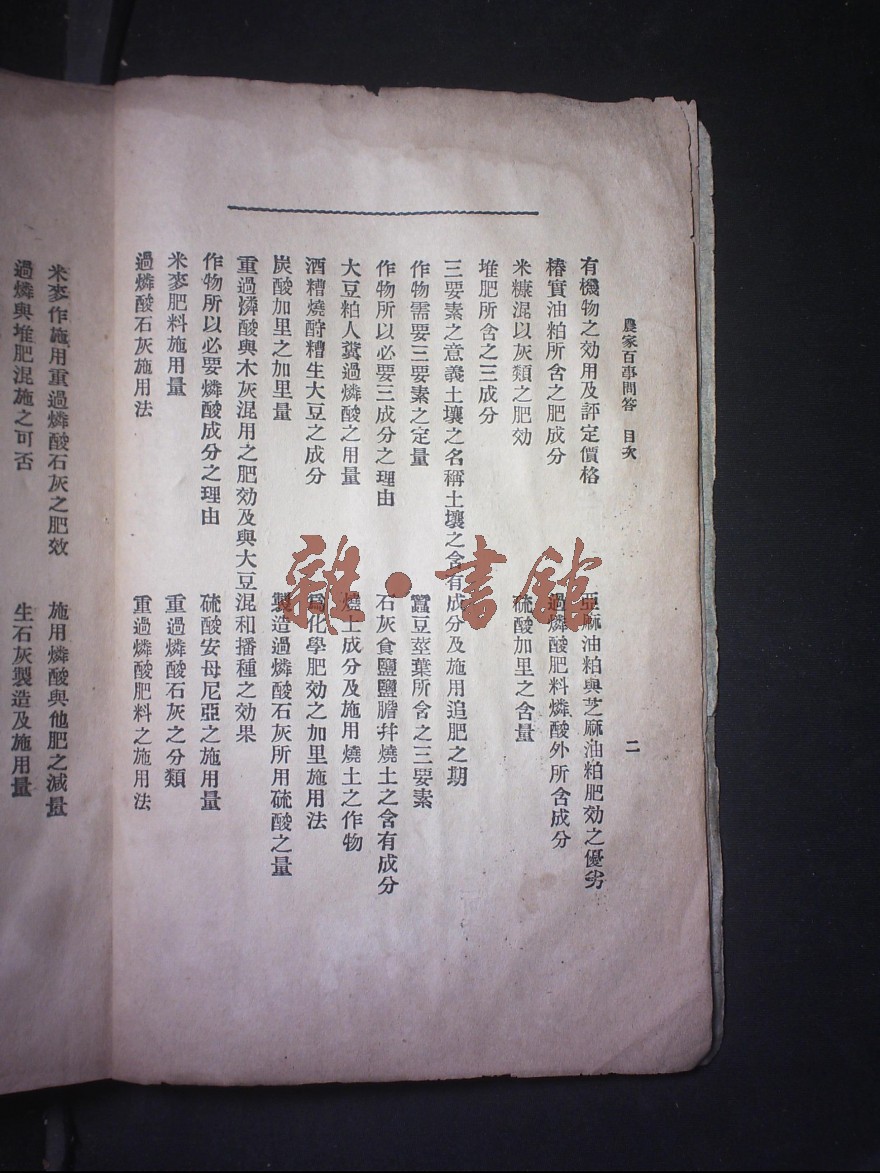 農家百事問答 目次
二
有機物之効用及評定價格 亞麻油粕與芝麻油粕肥効之優劣
椿實油粕所含之肥成分 過燐酸肥料燐酸外所含成分
米糠混以灰類之肥効 硫酸加里之含量
堆肥所含之三成分
三要素之意義土壤之名稱土壤之含有成分及施用追肥之期
作物需要三要素之定量 蠶豆莖葉所含之三要素
作物所以必要三成分之理由 石灰食鹽鹽膽幷燒土之含有成分
大豆粕人糞過燐酸之用量 燒土成分及施用燒土之作物
酒糟燒酎糟生大豆之成分 爲化學肥効之加里施用法
炭酸加里之加里量 製造過燐酸石灰所用硫酸之量
重過燐酸與木灰混用之肥効及與大豆混和播種之効果
作物所以必要燐酸成分之理由 硫酸安母尼亞之施用量
米麥肥料施用量 重過燐酸石灰之分類
過燐酸石灰施用法 重過燐酸肥料之施用法
米麥作施用重過燐酸石灰之肥效 施用燐酸與他肥之減量
過燐與堆肥混施之可否 生石灰製造及施用量
雜·書館